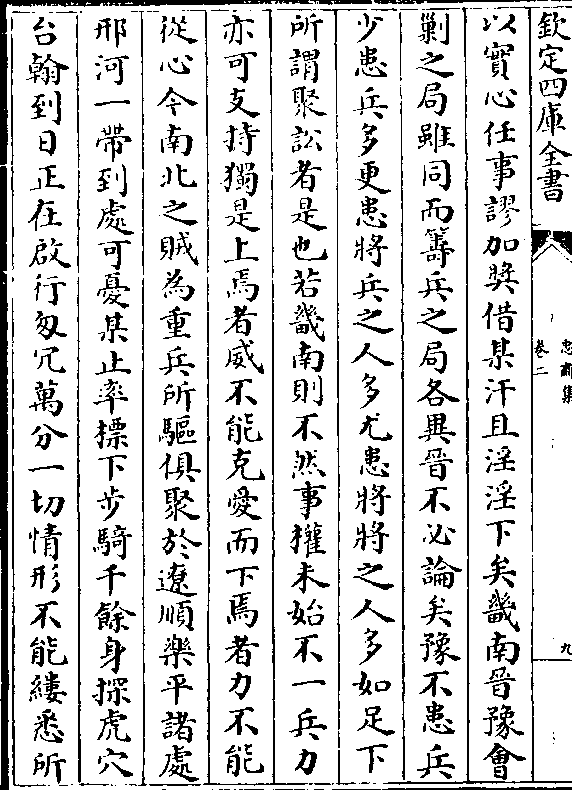 欽定四庫全書
忠肅集
卷二
九
以實心任事謬加奬借某汗且淫淫下矣畿南晉豫會
剿之局雖同而籌兵之局各異晉不必論矣豫不患兵
少患兵多更患將兵之人多尤患將將之人多如足下
所謂聚訟者是也若畿南則不然事權未始不一兵力
亦可支持獨是上焉者威不能克愛而下焉者力不能
從心今南北之賊為重兵所驅俱聚於遼順樂平諸處
邢河一帶到處可憂某止率摽下步騎千餘身探虎穴
台翰到日正在啟行匆冗萬分一切情形不能縷悉所